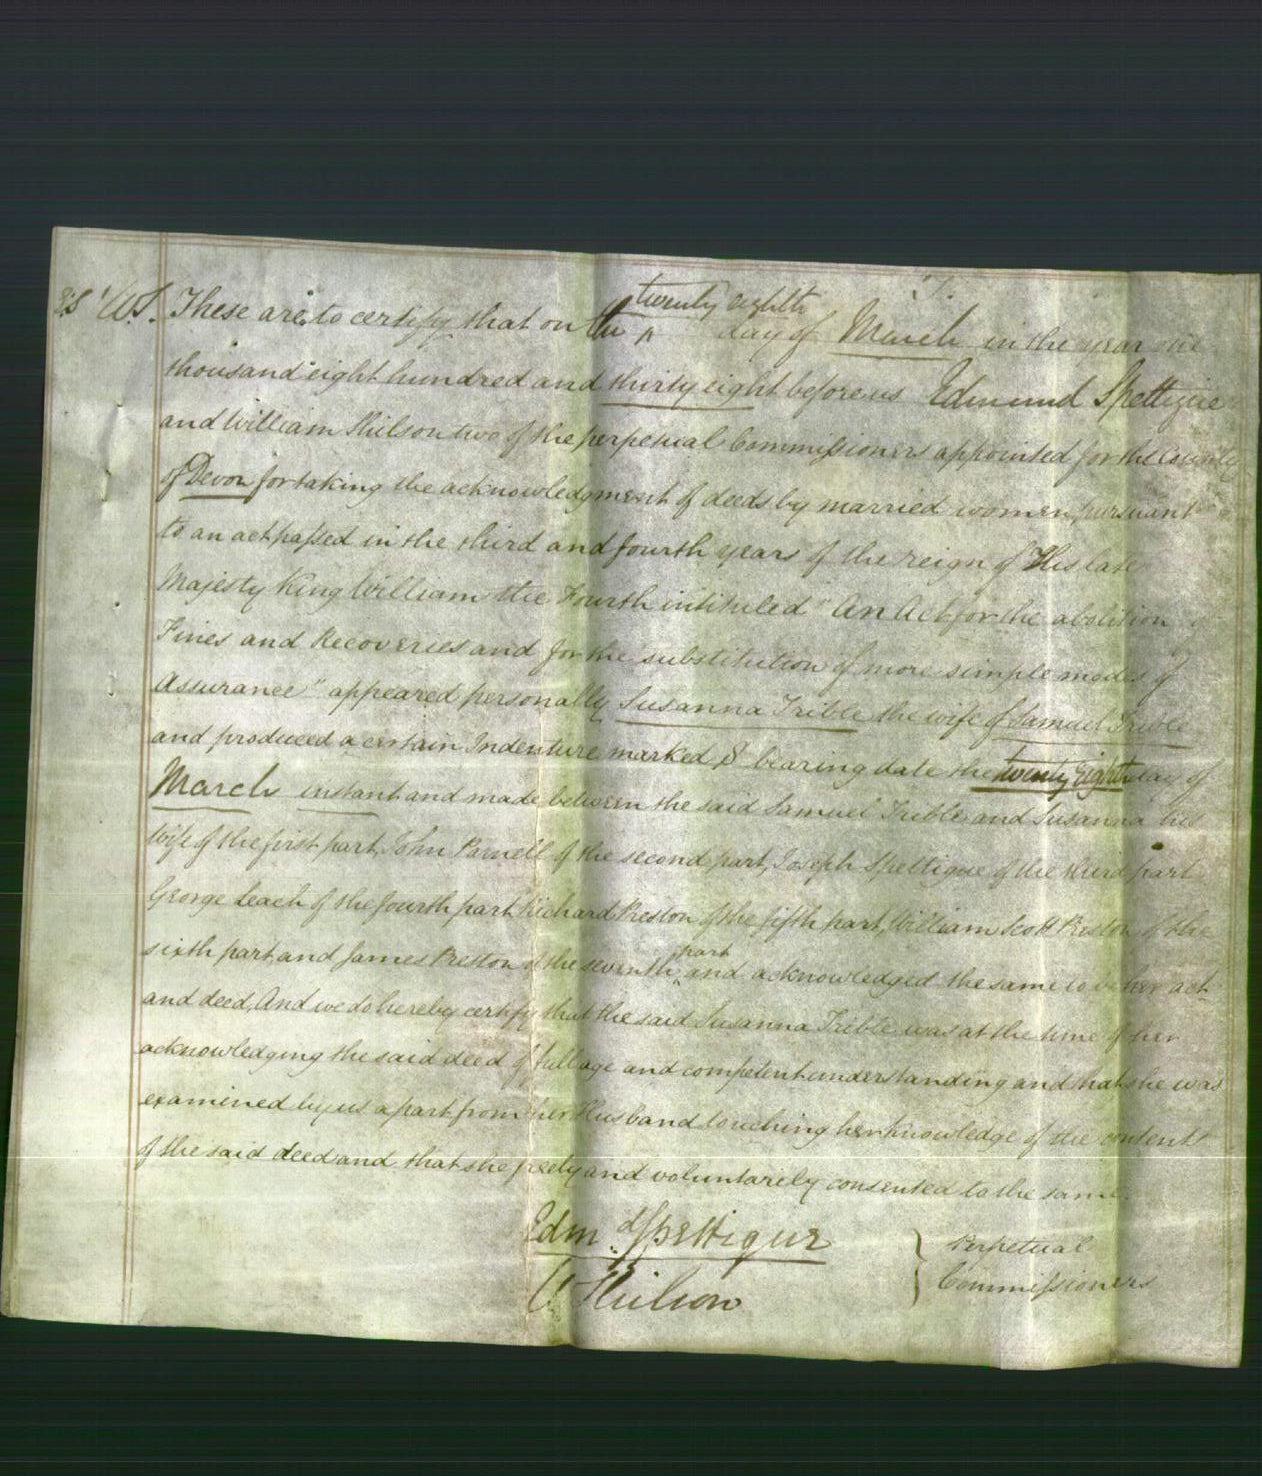 twenty eighth
These are to certify that on the ^ day of March in the year one
thousand eight hundred and thirty eight before us Edmund Spettigue
and William Shilson two of the perpetual Commissioners appointed for the County
of Devon for taking the acknowledgment of deeds by married women, pursuant
to an act passed in the third and fourth years of the reign of His late
Majesty King William the Fourth intituled "An Act for the abolition of
Fines and Recoveries and for the substitution of more simple modes of
Assurance" appeared personally Susanna Trible the wife of Samuel Trible
and produced a certain Indenture marked S bearing date the twenty Eighth day of
March instant and made between the said Samuel Trible and Susanna his
Wife of the first part, John Parnell of the second part, Joseph Spettigue of the third part
George Leach of the fourth part Richard Preston of the fifth part, William Scott Preston of the
part
sixth part and James Preston of the seventh ^ and acknowledged the same to be her act
and deed, And we do hereby certify that the said Susanna Trible was at the time of her
acknowledging the said deed of full age and competent understanding and that she was
examined by us apart from her Husband touching her knowledge of the contents
of the said deed and that she freely and voluntarely consented to the same.
Edmd. Spettigue
W Shilson
Perpetual
Commissioners